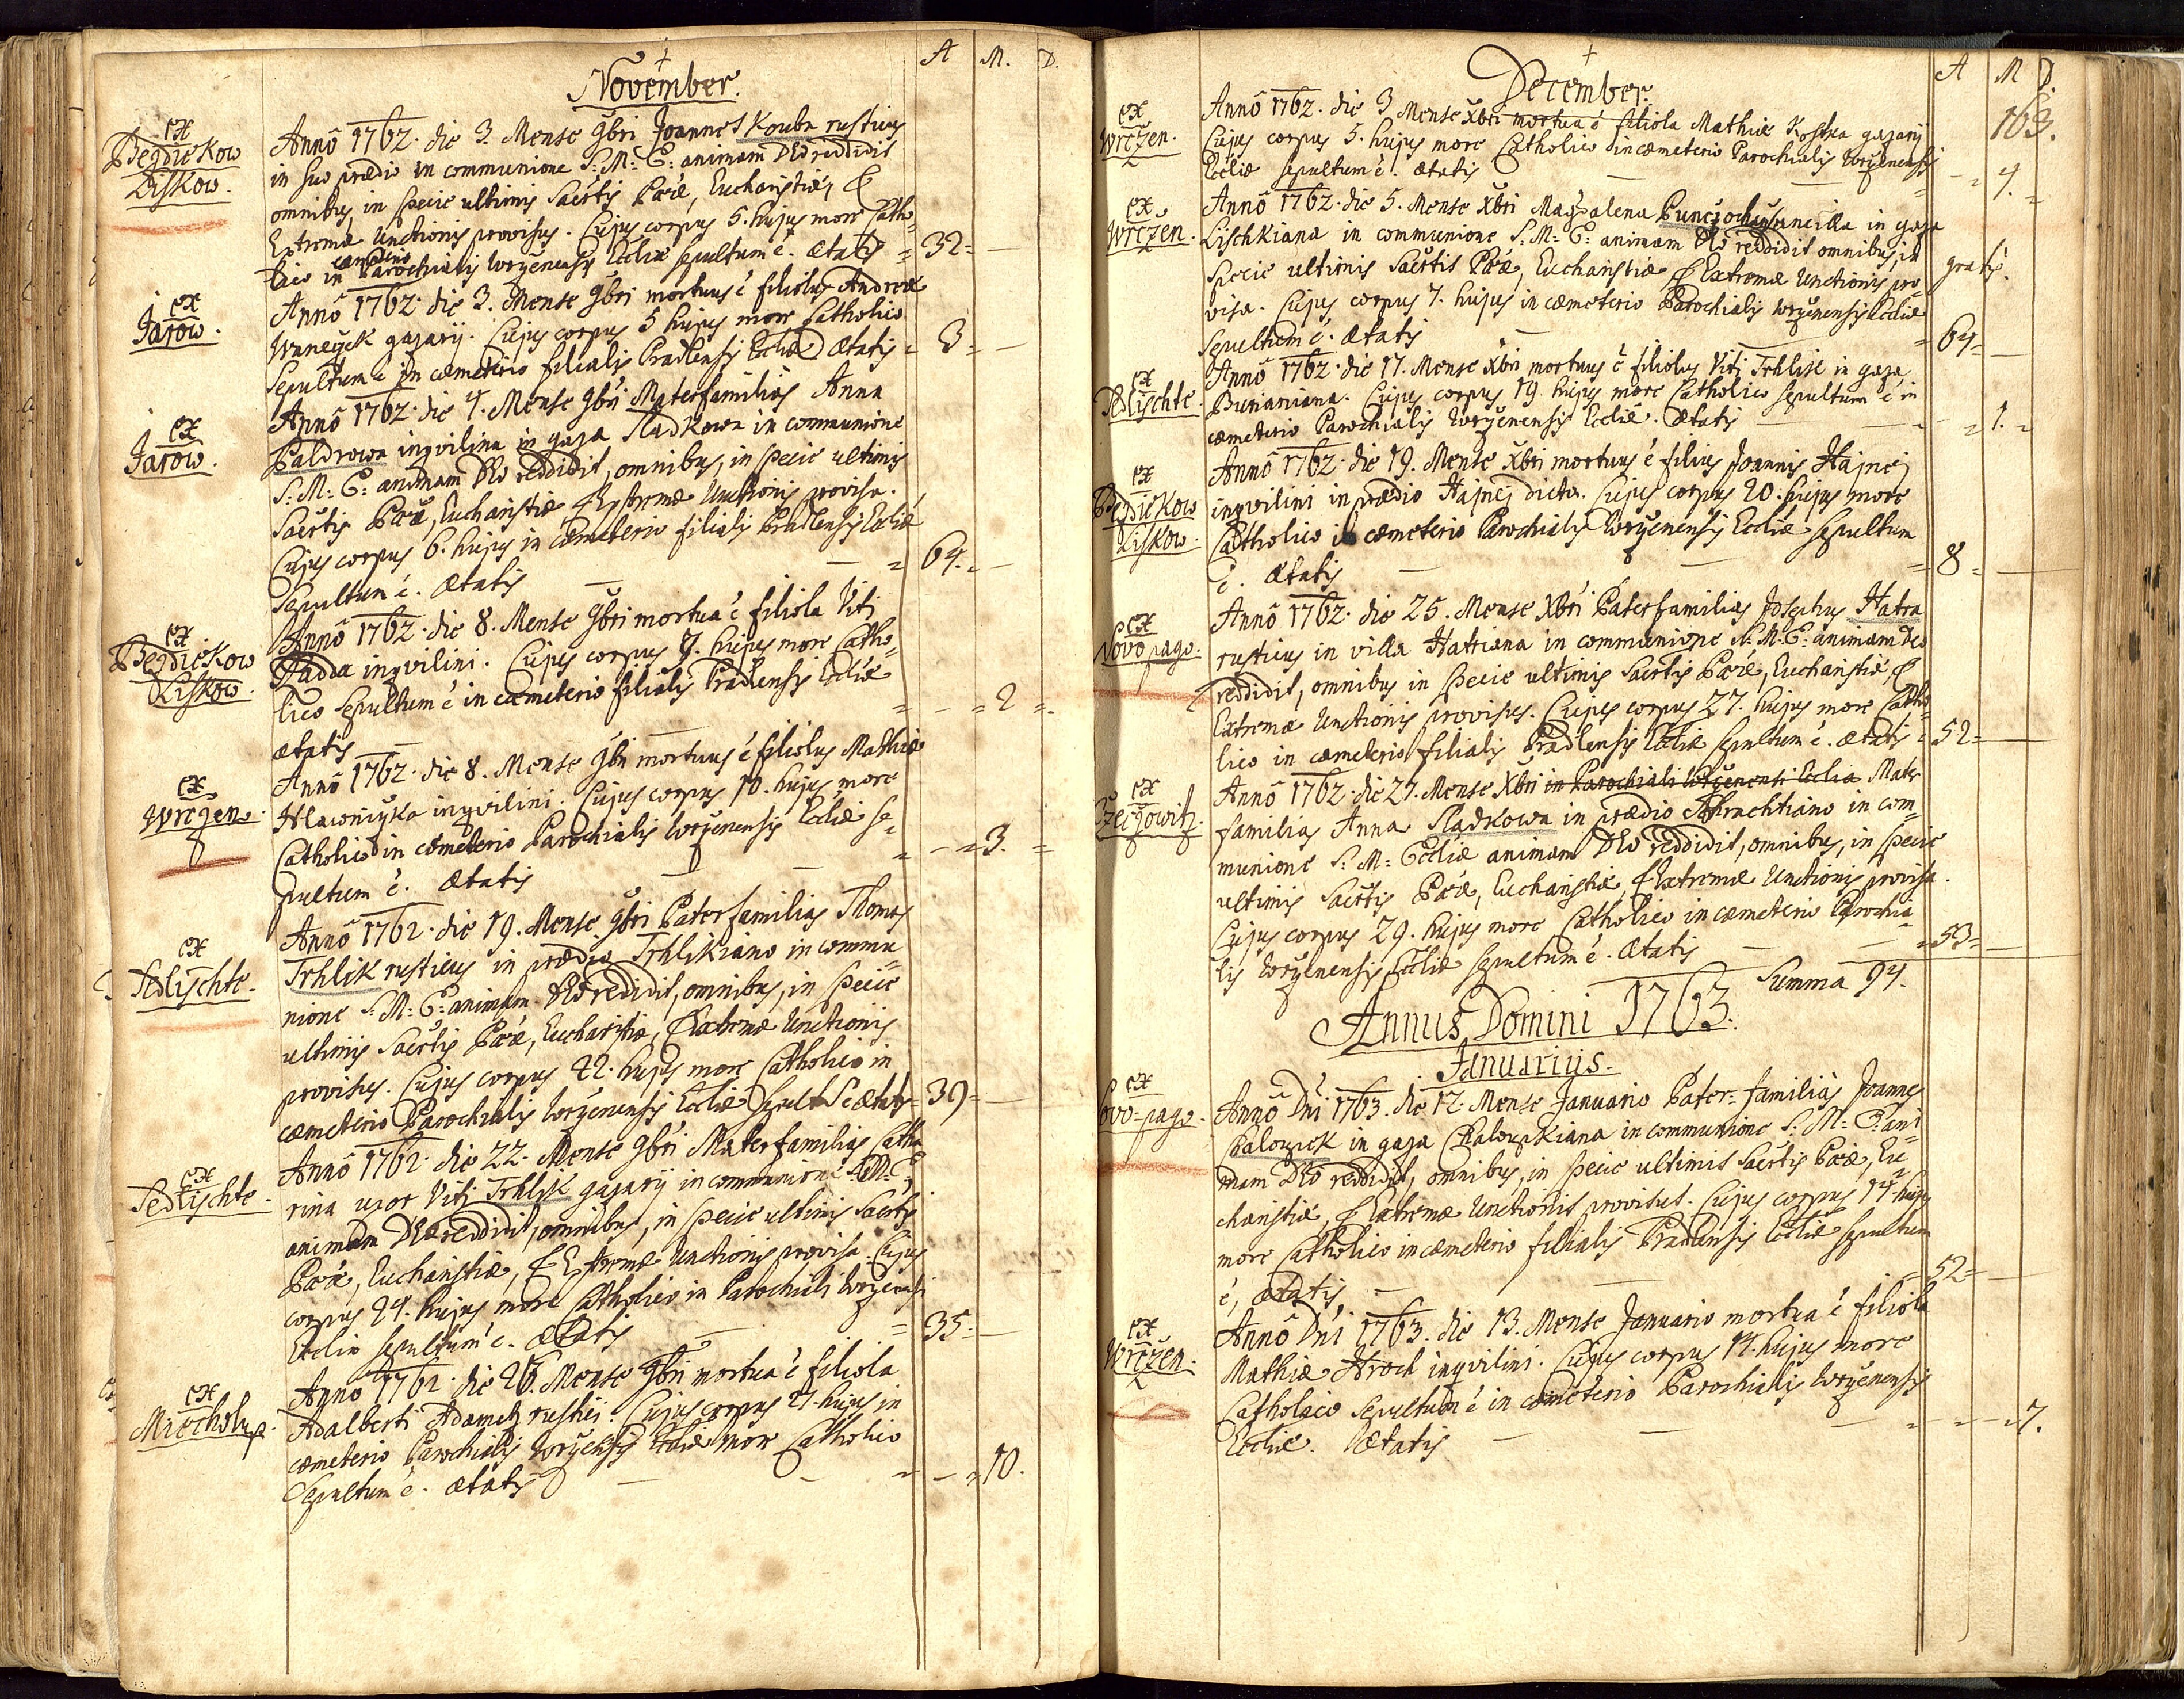 A M. D.
November.
ex
Bezdiekow
Liskow.
Annô 1762. die 3. Mense 9bri Joannes Kouba rusticus
in suo prædio in communione S: M: E: animam DEo reddidit
omnibus, in specie ultimis Sacrtis Pœæ, Eucharistiæ, &
Extremæ Unctionis provisus. Cujus corpus 5. hujus more Catho=
lico in cæmeterio Parochialis Wrčenensis Eccliæ sepultum ë. ætatis = 32 =
ex
Jarow.
Annô 1762. die 3. Mense 9bri mortuus ë filiolus Andreæ
gazarij. Cujus corpus 5 hujus more Catholico
Sepultum ë in cæmeterio filialis Pradlensis Eccliæ Ætatis = 3 =
ex
Jarow.
Annô 1762. die 4. Mense 9bri Materfamilias Anna
Baldrowa inqvilina in gaza Sladkowa in communione
S: M: E: animam DEo reddidit, omnibus, in specie ultimis
Sacrtis Pœæ, Eucharistiæ & Extremæ Unctionis provisa.
Cujus corpus 6. hujus in Cæmeterio filialis Pradlensis Eccliæ
Sepultum ë. Ætatis = 64. =
ex
Bezdiekow
Liskow.
Annô 1762. die 8. Mense 9bri mortua ë filiola Viti
Hadda inqvilini. Cujus corpus 9. hujus more Catho=
lico sepultum ë in cæmeterio filialis Pradlensis Eccliæ
ætatis = - = 2 =
ex
Wrčzen.
Annô 1762. die 8. Mense 9bri mortuus ë filiolus Mathiæ
Hlawnička inqvilini. Cujus corpus 10. hujus more
Catholico in cæmeterio Parochialis Wrčenensis Eccliæ se=
pultum ë. Ætatis = - = 3. =
ex
Sedlischte.
Annô 1762. die 19. Mense 9bri Paterfamilias Thomas
Trhlik rusticus in prædio Trhlikiano in commu
nione S: M: E: animam DEo reddidit, omnibus, in specie
ultimis Sacrtis Pœæ, Eucharistiæ, & Extremæ Unctionis
provisus. Cujus corpus 22. hujus more Catholico in
cæmeterio Parochialis Wrčenensis Eccliæ Sepult ë ætatis = 39 =
ex
Sedlischte.
Annô 1762. die 22. Mense 9bri Materfamilias Catha
rina uxor Viti Trhlik gazarij in communione S: M: E:
animam DEo reddidit, omnibus, in specie ultimis Sacrtis
Pœæ, Eucharistiæ, & Extremæ Unctionis provisa. Cujus
corpus 24. hujus more Catholico in Parochiali Wrčenensi
Ecclia sepultum ë. Ætatis = 35 =
ex
Miecholup.
Anno 1762. die 26. Mense 9bri mortua ë filiola
Adalberti Adametz rustici. Cujus corpus 27. hujus in
cæmeterio Parochialis Wrčensis Eccliæ more Catholico
Sepultum ë. ætatis = - = 10.
A M D.
163.
December.
ex
Wrčzen.
Annô 1762. die 3 Mense Xbri mortua ë filiola Mathiæ Kostka gazarij
Cujus corpus 5. hujus more Catholico in cæmeterio Parochialis Wrčenensis
Eccliæ sepultum ë. ætatis - = 4. =
ex
Wrčzen.
Annô 1762. die 5. Mense Xbri Magdalena in gaza
Lischkiana in communione S: M: E: animam DEo reddidit omnibus, in
specie ultimis Sacrtis Pœæ, Eucharistiæ & Extremæ Unctionis pro=
visa. Cujus corpus 7. hujus in cæmeterio Parochialis Wrčenensis Eccliæ
gratis.
sepultum ë. Ætatis = 64 =
ex
Sedlischte.
Annô 1762. die 17. Mense Xbri mortuus ë filiolus Viti Trhlik in gaza
Burianiana. Cujus corpus 19. hujus more Catholico sepultum ë in
cæmeterio Parochialis Wrčenensis Eccliæ. Ætatis = - = 1. =
ex
Bezdiekow
Liskow.
Annô 1762. die 19. Mense Xbri mortuus ë filius Joannis Hajnej
inqvilini in prædio Hajnej dicto. Cujus corpus 20. hujus more
Catholico in cæmeterio Parochialis Wrčenensis Eccliæ sepultum
ë. Ætatis = 8 =
ex
Novo pago.
Annô 1762. die 25. Mense Xbri Paterfamilias Josephus Hatra
rusticus in villa Hatriana in communione S: M: E: animam Deo
reddidit, omnibus in specie ultimis Sacrtis Pœæ, Eucharistiæ, &
Extremæ Unctionis provisus. Cujus corpus 27. hujus more Catho=
lico in cæmeterio filialis Pradlensis Eccliæ sepultum ë. ætatis = 52 =
ex
Czeizowitz.
Annô 1762. die 27. Mense Xbri in Parochiali Wrčenensi Ecclia Mater
familias Anna Sladkowa in prædio in com=
munione S: M: Eccliæ animam DEo reddidit, omnibus, in specie
ultimis Sacrtis Pœæ, Eucharistiæ, & Extremæ Unctionis provisa.
Cujus corpus 29. hujus more Catholico in cæmeterio Parochia=
lis Wrčenensis Eccliæ sepultum ë. Ætatis = 53 =
Summa 94.
Annus Domini 1763.
Januarius.
ex
Novo-pago.
Annô Dni 1763. die 12. Mense Januario Pater=familias Joannes
Chalouzek in gaza Chalouzkiana in communione S: M: E: ani=
mam DEo reddidit, omnibus, in specie ultimis Sacrtis Pœæ, Eu=
charistiæ, & Extremæ Unctionis provisus. Cujus corpus 14. hujus
more Catholico in cæmeterio filialis Pradlensis Eccliæ sepultum
ë, ætatis = 52 =
ex
Wrčzen.
Annô Dni 1763. die 13. Mense Januario mortua ë filiola
Mathiæ Hroch inqvilini. Cujus corpus 14. hujus more
Catholico Sepultum ë in cæmeterio Parochialis Wrčenensis
Eccliæ. Ætatis = - = - = 7.